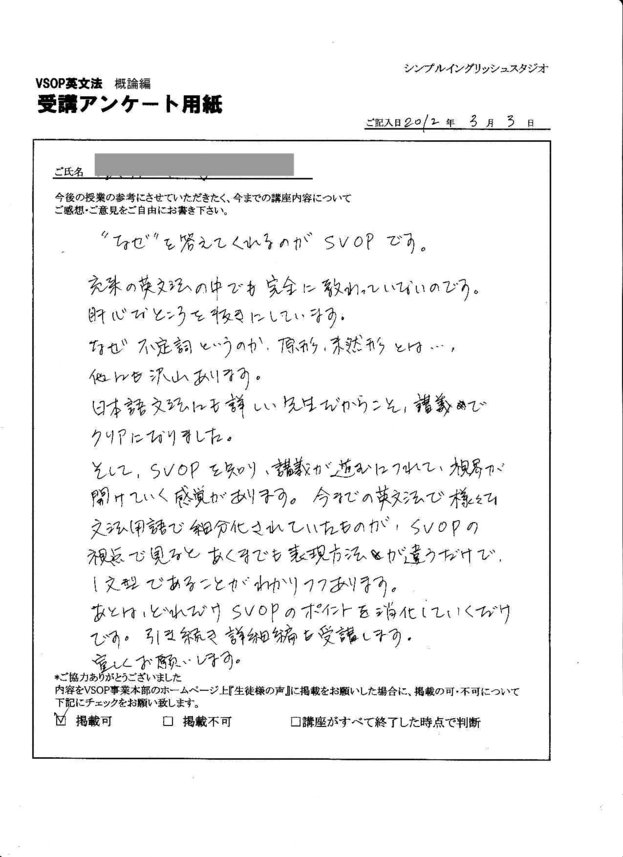 シンプルイングリッシュスタジオ
VSOP英文法 概論編
受講アンケート用紙
ご記入日 2012 年 3 月 3 日
ご氏名
今後の授業の参考にさせていただきたく、今までの講座内容について
ご感想・ご意見をご自由にお書き下さい。
“なぜ”を答えてくれるのが SVOP です。
充来の英文法の中でも完全に教わっていないのです。
肝心なところを抜きにしています。
なぜ 不定詞というのか、原形、未然形 とは…、
他にも沢山あります。
日本語文法にも詳しい先生だからこそ、講義で
クリアになりました。
そして、SVOP を知り、講義が進むにつれて、視界が
開けていく感覚があります。今までの英文法で様々な
文法用語で細分化されていたものが、SVOPの
視点で見ると あくまでも表現方法が違うだけで、
1文型であることがわかりつつあります。
あとは、どれだけ SVOPのポイントを消化していくだけ
です。引き続き詳細編も受講します。
宜しくお願いします。
*ご協力ありがとうございました
内容をVSOP事業本部のホームページ上『生徒様の声』に掲載をお願いした場合に、掲載の可・不可について
下記にチェックをお願い致します。
☑ 掲載可 □ 掲載不可 □講座がすべて終了した時点で判断